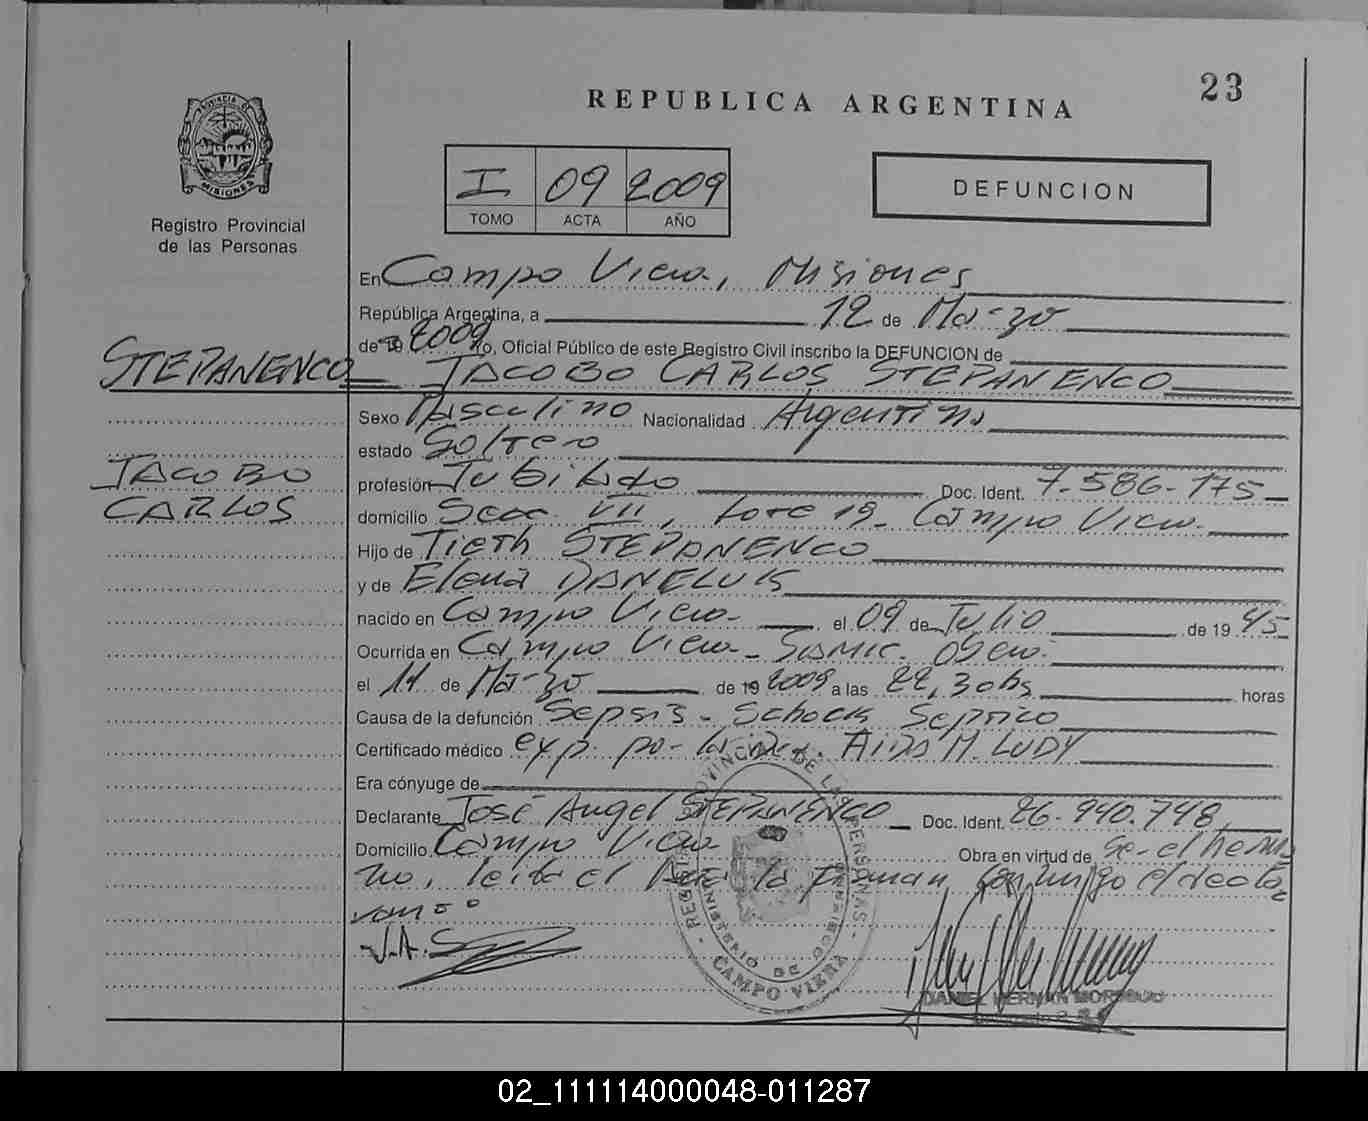 23
REPUBLICA ARGENTINA
PROVINCIA DE MISIONES
Registro Provincial
de las Personas
I 09 2009
TOMO ACTA AÑO
DEFUNCION
En Campo Viera, Misiones
República Argentina, a 12 de Marzo
de 19 2009 Yo, Oficial Público de este Registro Civil inscribo la DEFUNCION de
STEPANENCO JACOBO CARLOS STEPANENCO
Sexo Masculino Nacionalidad Argentina
estado Soltero
JACOBO
CARLOS
profesión Jubilado Doc. Ident. 7.586.175
domicilio Secc VII, Lote 19 - Campo Viera
Hijo de Tieth STEPANENCO
y de Elena DANELUK
nacido en Campo Viera el 09 de Julio de 19 45
Ocurrida en Campo Viera - Samic - Oberá
el 11 de Marzo de 19 2009 a las 22,30hs horas
Causa de la defunción Sepsis - Schock Septico
Certificado médico exp. por la Dra. AIDA M. LUDY
Era cónyuge de
Declarante José Angel STEPANENCO Doc. Ident. 26.940.748
Domicilio Campo Viera Obra en virtud de ser el herma
no, leida el Acta la firman conmigo el decla
rante
J.A.
REGISTRO PROVINCIAL DE LAS PERSONAS
MINISTERIO DE GOBIERNO
CAMPO VIERA
DANIEL HERNAN
02_111114000048-011287